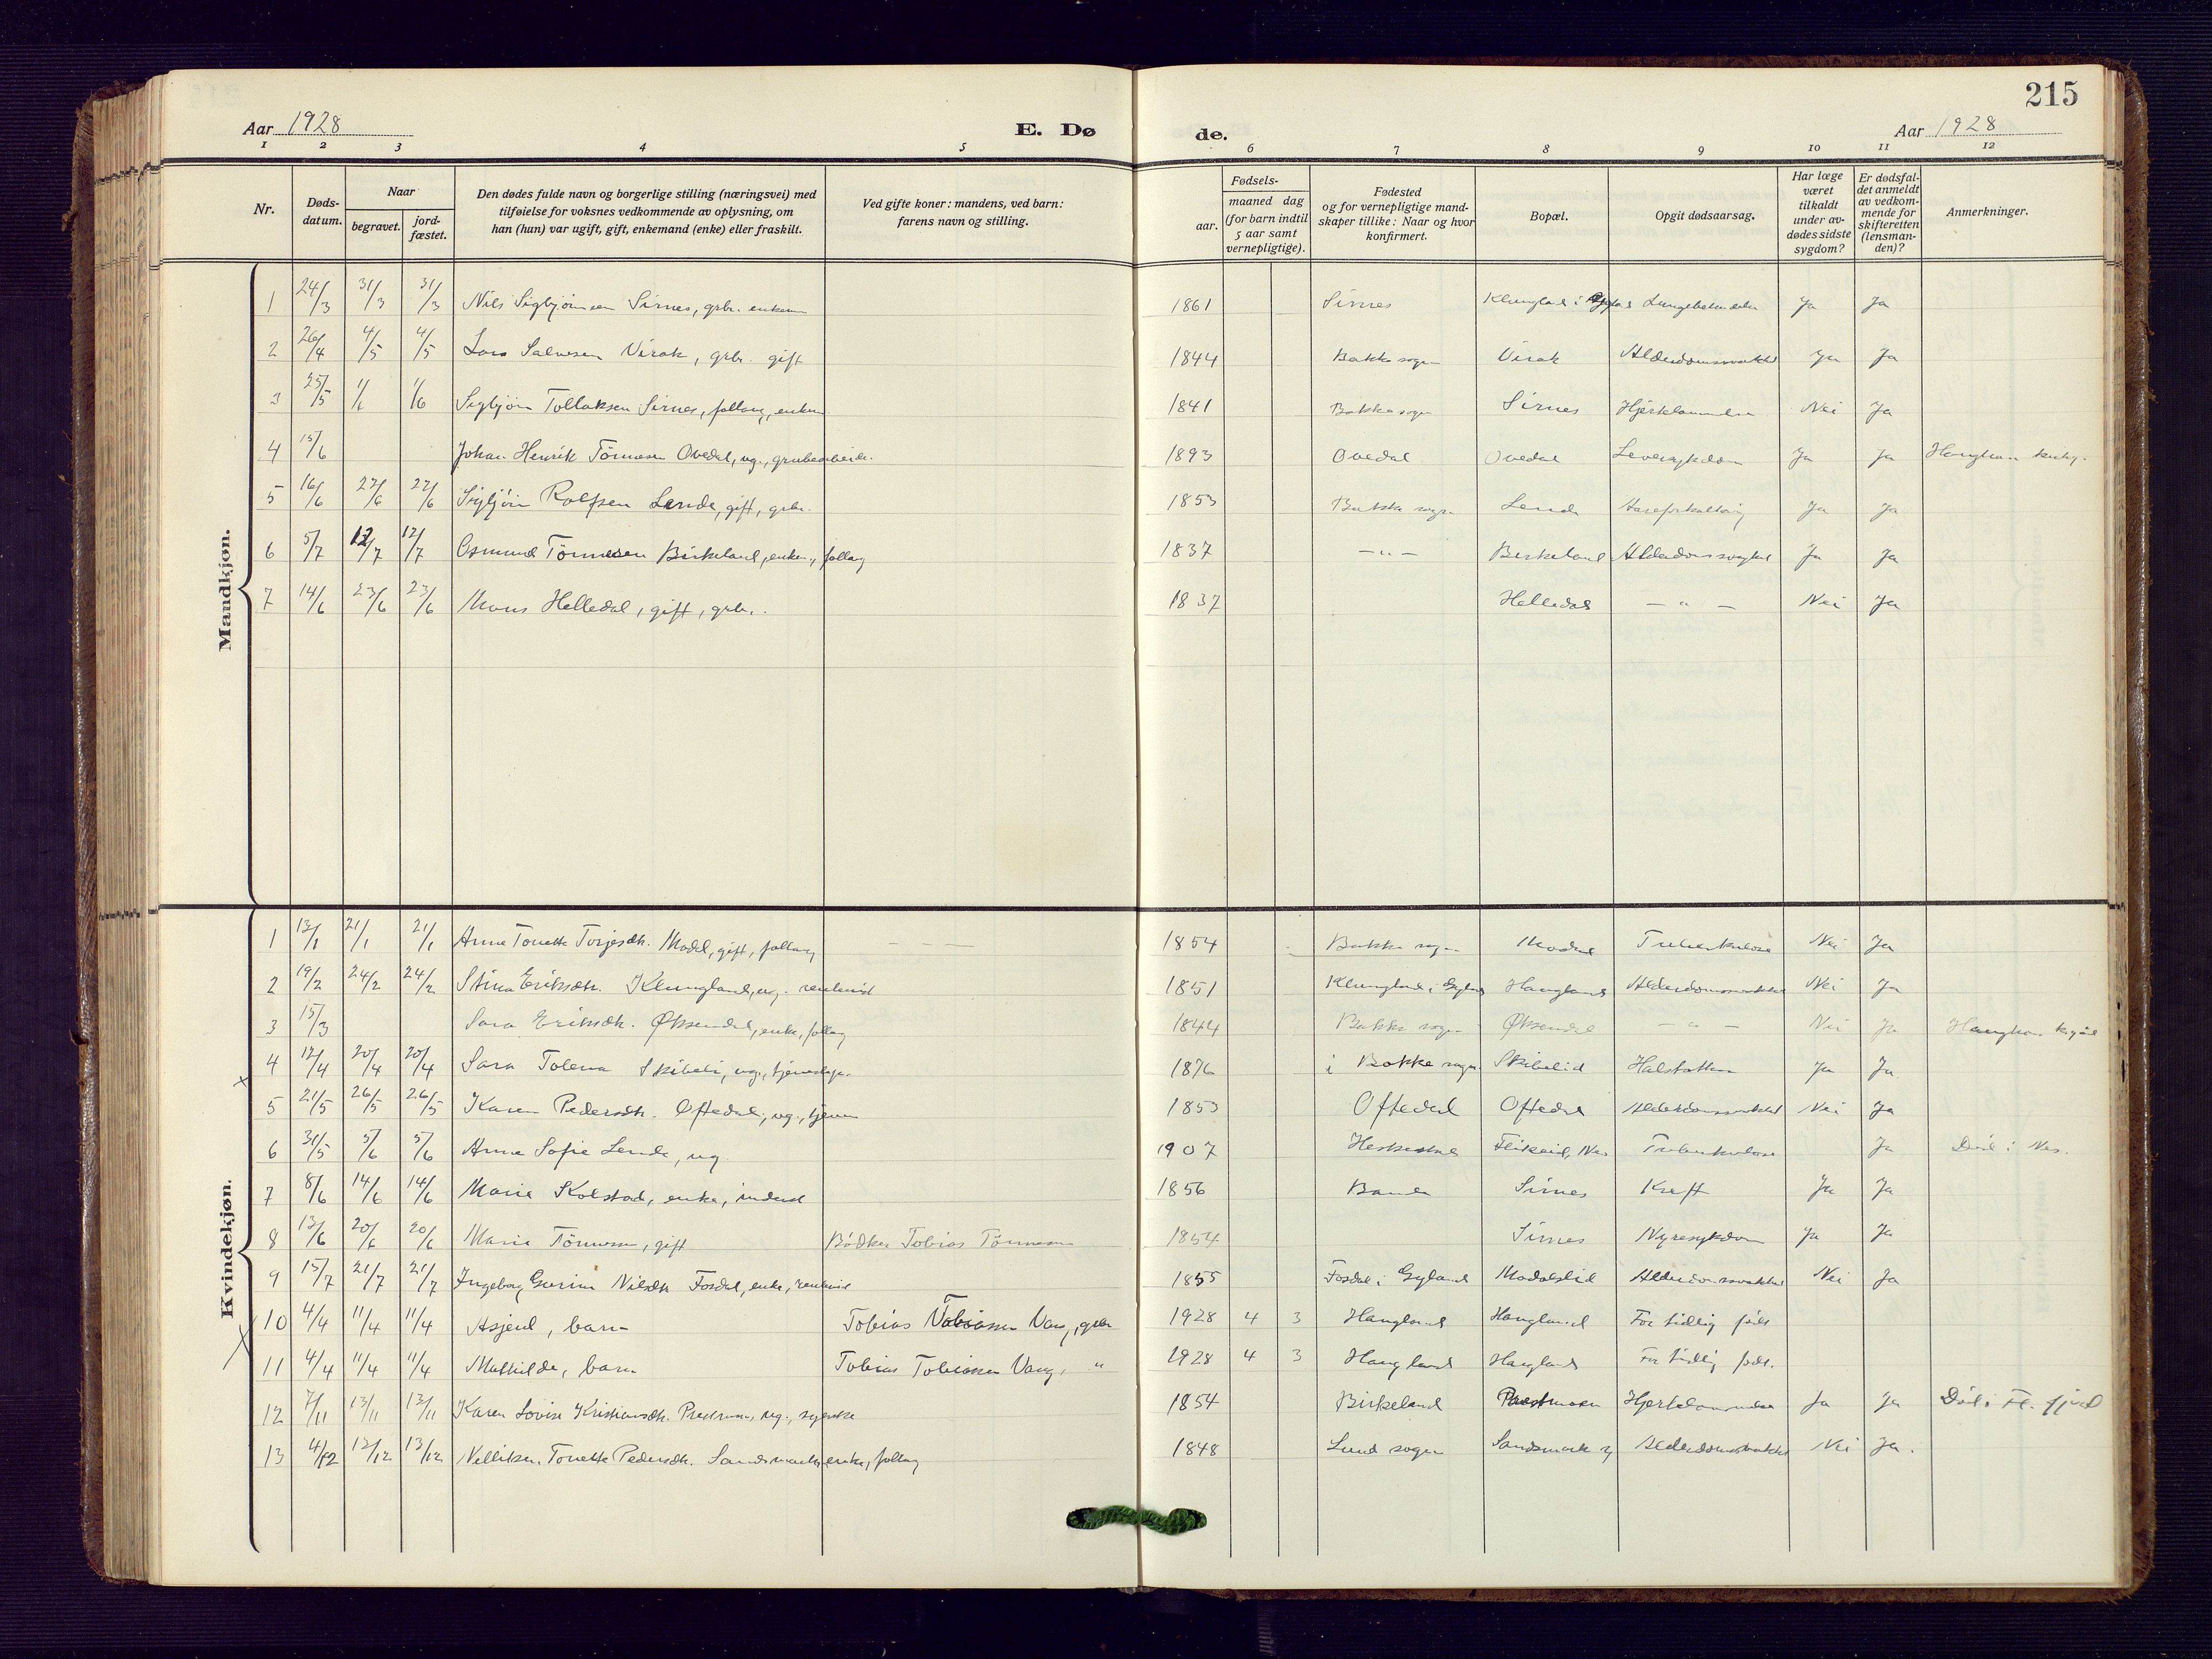 215
Aar 1928 E. Dø de. Aar 1928
1 2 3 4 5 6 7 8 9 10 11 12
Nr.
Døds-
datum.
Naar
begravet.
jord-
fæstet.
Den dødes fulde navn og borgerlige stilling (næringsvei) med
tilføielse for voksnes vedkommende av oplysning, om
han (hun) var ugift, gift, enkemand (enke) eller fraskilt.
Ved gifte koner: mandens, ved barn:
farens navn og stilling.
Fødsels-
aar.
maaned dag
(for barn indtil
5 aar samt
vernepligtige).
Fødested
og for vernepligtige mand-
skaper tillike: Naar og hvor
konfirmert.
Bopæl.
Opgit dødsaarsag.
Har læge
været
tilkaldt
under av-
dødes sidste
sygdom?
Er dødsfal-
det anmeldt
av vedkom-
mende for
skifteretten
(lensman-
den)?
Anmerkninger.
Maandkjøn.
1 24/3 31/3 31/3 Nils Sigbjörnsen Sirnes, grbr. enkem 1861 Sirnes Klungland i Ja Ja
2 26/4 4/5 4/5 Lars Salvesen Virak, grbr. gift 1844 Bakke sogn Virak Alderdomssvakhet Ja Ja
3 25/5 1/6 Sigbjörn Tollaksen Sirnes, follaug, enkem 1841 Bakke sogn Sirnes Hjertelammelse Nei Ja
4 15/6 Johan Henrik Tönnesen Ovedal, ug., grubearbeider. 1893 Ovedal Ovedal Leversykdom Ja Ja
5 16/6 22/6 22/6 Sigbjörn Rolfsen Lende, gift, grbr. 1853 Bakke sogn Lende Aareforkalkning Ja Ja
6 5/7 12/7 12/7 Osmund Tönnesen Birkeland, enkem, follaug 1837 — " — Birkeland Alderdomssvaghet Ja Ja
7 14/6 23/6 23/6 Mons Helledal, gift, grbr. 1837 Helledal — " — Nei Ja
Kvindekjøn.
1 13/1 21/1 21/1 Anne Tonette Torjesdtr. Modal, gift, follaug — — — 1854 Bakke sogn Modal Tuberkulose Nei Ja
2 19/2 24/2 24/2 Stina Eriksdtr. Klungland, ug. 1851 Klungland i Gyland Haugland Alderdomssvakhet Nei Ja
3 15/3 Sara Eriksdtr. Øksendal, enke, follaug 1844 Bakke sogn Øksendal — " — Nei Ja
4 12/4 20/4 20/4 Sara Tolena Skibeli, ug., tjenestepi. 1876 i Bakke sogn Skibelid Ja Ja
5 21/5 26/5 26/5 Karen Pedersdtr. Oftedal, ug., tjenes 1853 Oftedal Oftedal Alderdomssvakhet Nei Ja
6 31/5 5/6 5/6 Anne Sofie Lende, ug. 1907 Heskestad Flikeid, Nes Tuberkulose Ja Död i Nes.
7 8/6 14/6 14/6 Marie Kolstad, enke, inderst 1856 Sirnes Kreft Ja Ja
8 13/6 20/6 20/6 Marie Tönnesen, gift Bödker Tobias Tönnesen 1854 Sirnes Nyresykdom Ja Ja
9 15/7 21/7 21/7 Ingeborg Gurine Nilsdtr Fosdal, enke, 1855 Fosdal i Gyland Modalslid Alderdomssvakhet Nei Ja
10 4/4 11/4 11/4 Asjerd, barn Tobias Tobiassen Vang, grbr 1928 4 3 Haugland Haugland For tidlig född
11 4/4 11/4 11/4 Mathilde, barn Tobias Tobiassen Vang, " 1928 4 3 Haugland Haugland For tidlig född.
12 7/11 13/11 13/11 Karen Lovise Kristiansdtr. ug., syerske 1854 Birkeland Hjertelammelse Ja Ja Död i Fl. fjord
13 4/12 13/12 13/12 Tonette Pedersdtr. Sandsmark, enke, follaug 1848 Lund sogn Sandsmark Alderdomssvakhet Nei Ja.